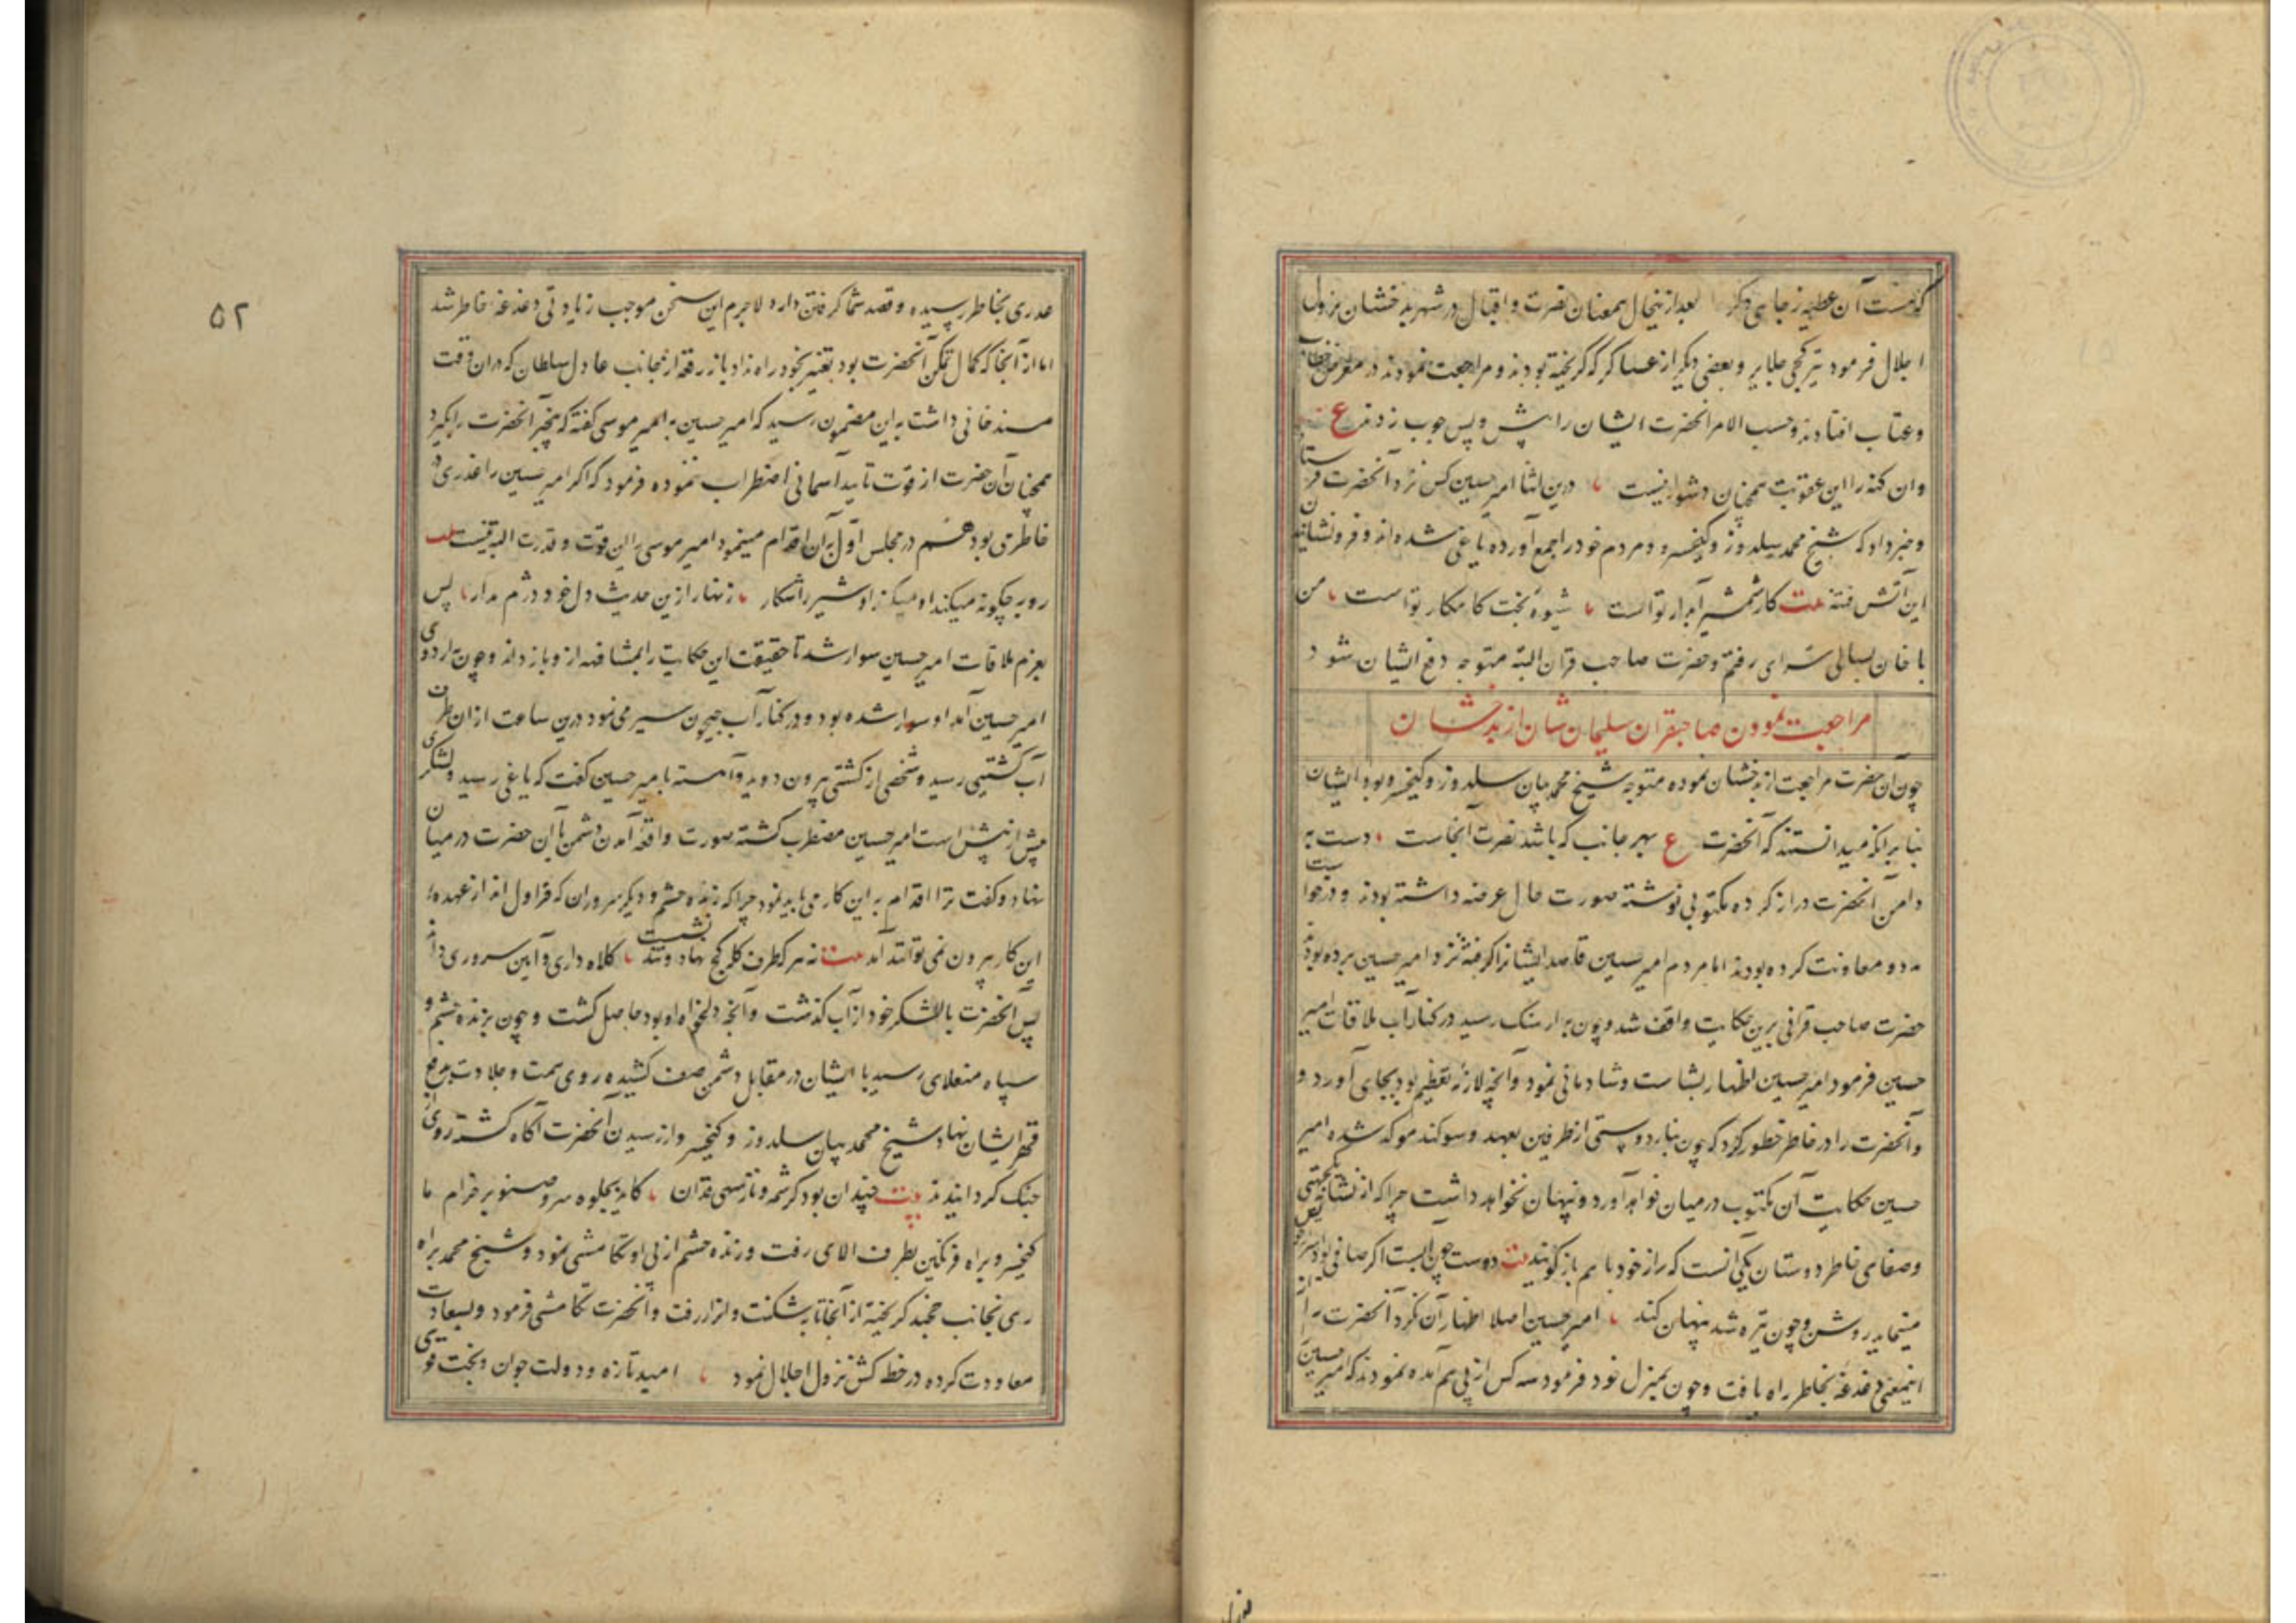 که هست آن عطیه ز جاهی دگر بعد از ینحال همعنان نصرت و اقبال در شهر بدخشان نزول
اجلال فرمود تیرکچی جلایر و بعضی دیگر از عساکر که گریخته بودند و مراجعت نمودند در معرض خطاب
و عتاب افتادند و حسب الامر آنحضرت ایشان را پش و پس چوب زدند ع
وان کنه را این عقوبت همچنان دشوار نیست درین اثنا امیر حسین کس نزد آنحضرت فرستاد
و خبر داد که شیخ محمد سلدوز و کیخسرو و مردم خود را جمع آورده یاغی شده اند و فرونشاندن
این آتش فتنه بیت کار شمشیر آبدار تو است شیوه بخت کامکار تو است من
با خان بسالی سرای رفتم و حضرت صاحب قران البته متوجه دفع ایشان شود
مراجعت نمودن صاحبقران سلیمان شان از بدخشان
چون آن حضرت مراجعت از بدخشان نموده متوجه شیخ محمد بیان سلدوز و کیخسرو بود ایشان
بنابر آنکه میدانستند که آنحضرت ع بهر جانب که باشد نصرت آنجاست دست به
دامن آنحضرت دراز کرده مکتوبی نوشته صورت حال عرضه داشته بودند و درخواست
مدد و معاونت کرده بودند اما مردم امیر حسین قاصد ایشانرا گرفته نزد امیر حسین برده بودند
حضرت صاحب قرانی برین حکایت واقف شد و چون به ارهنگ رسید در کنار آب ملاقات امیر
حسین فرمود امیر حسین اظهار بشاشت و شادمانی نمود و آنچه لازمه تعظیم بود بجای آورد و
و آنحضرت را در خاطر خطور کرد که چون بنا بر دوستی از طرفین بعهد و سوکند موکد شده امیر
حسین حکایت آن مکتوب در میان خواهد آورد و پنهان نخواهد داشت چرا که از نشانه یکجهتی
و صفای خاطر دوستان یکی آنست که راز خود با هم باز گویند بیت دوست چون آبست اگر صافی بود
مینماید روشن و چون تیره شد پنهان کند امیر حسین اصلا اظهار آن نکرد آنحضرت را از
اینمعنی دغدغه بخاطر راه یافت و چون بمنزل خود فرمود سه کس از پی هم آمده نمودند که امیر حسین
غدری بخاطر رسیده و قصد شما گرفتن دارد لاجرم این سخن موجب زیادتی دغدغه خاطر شد
اما از آنجا که کمال تمکن آنحضرت بود تغییر بخود راه نداد باز رقعه از بجانب عادل سلطان که در ان وقت
مسند خانی داشت به این مضمون رسید که امیر حسین به امیر موسی گفته که بخبر آنحضرت را بگیرد
همچنان آن حضرت از قوت تایید آسمانی اضطراب ننموده فرمود که اگر امیر حسین را غدری در
خاطر می بود هم در مجلس اول بر آن اقدام مینمود امیر موسی را این قوت و قدرت البته نیست بیت
روبه چگونه میکند او شیر را شکار زنهار ازین حدیث دل خود دژم مدار پس
بعزم ملاقات امیر حسین سوار شد تا حقیقت این حکایت را بمشافهه ازو باز داند و چون به اردوی
امیر حسین آمد او سوار شده بود و در کنار آب جیحون سیر می نمود درین ساعت از ان طرف
آب کشتیی رسید و شخصی از کشتی بیرون دوید و آهسته با میر حسین گفت که یاغی رسید و لشکری
پش از پیش است امیر حسین مضطرب گشته صورت واقعه آمدن دشمن با آن حضرت در میان
نهاد و گفت ترا اقدام به این کار می باید نمود چرا که زنده چشم و دیگر سروران که قراول اند از عهده
این کار بیرون نمی توانند آمد بیت نه هر که طرف کله کج نهاد و تند نشست کلاه داری و آیین سروری داند
پس آنحضرت با لشکر خود از آب گذشت و آنچه دلخواه او بود حاصل گشت و چون بزنده چشم و
سپاه منغلای رسید با ایشان در مقابل دشمن صف کشیده روی همت و جلادت بدفع
قهر ایشان نهاد شیخ محمد بیان سلدوز و کیخسرو از رسیدن آنحضرت آگاه گشته روی از
جنگ گردانیدند بیت چندان بود کرشمه و ناز سهی قدان کاید بجلوه سرو صنوبر خرام ما
کیخسرو براه فرنکین بطرف الای رفت و زنده چشم از پی او تکامشی نمود و شیخ محمد براه
ری بجانب خجند گریخته از آنجا تا بتاشکنت و اترار رفت و آنحضرت تکامشی فرمود و بسعادت
معاودت کرده در خطه کش نزول اجلال نمود امید تازه و دولت جوان و بخت قوی
۵۲